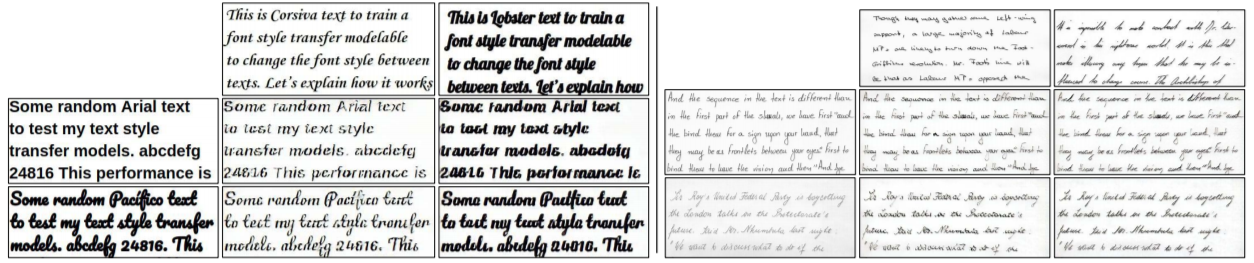 This is Corsiva text to train a
font style transfer modelable
to change the font style between
texts. Let's explain how it works
This is Lobster text to train a
font style transfer modelable
to change the font style
between texts. Let's explain how
Some random Arial text
to test my text style
transfer models. abcdefg
24816 This performance is
Some random Arial text
to test my text style
transfer models. abcdefg
24816 This performance is
Some random Arial text
to test my text style
transfer models. abcdefg
24816 This performance is
Some random Pacifico text
to test my text style transfer
models. abcdefg 24816. This
Some random Pacifico text
to test my text style transfer
models. abcdefg 24816. This
Some random Pacifico text
to test my text style transfer
models. abcdefg 24816. This
Though they may gather some Left-wing
support, a large majority of Labour
MPs are likely to turn down the Foot-
Griffiths resolution. Mr. Foot's line will
be that as Labour MPs opposed the
It is impossible to make contact with Dr. Ver-
in his righteous world. It is this that
And the sequence in the text is different than
in the first part of the we have first "and
the bind them for a sign upon your hand, that
they may be as frontlets between your eyes" first to
bind them to have the vision and then "And
And the sequence in the text is different than
in the first part of the we have first "and
the bind them for a sign upon your hand, that
they may be as frontlets between your eyes" first to
bind them to have the vision and then "And
And the sequence in the text is different than
in the first part of the we have first "and
the bind them for a sign upon your hand, that
they may be as frontlets between your eyes" first to
bind them to have the vision and then "And
Sir Roy's United Federal Party is boycotting
the London talks on the Protectorate's
future. Said Mr. Nkumbula last night:
"We want to discuss what to do if the
Sir Roy's United Federal Party is boycotting
the London talks on the Protectorate's
future. Said Mr. Nkumbula last night:
"We want to discuss what to do if the
Sir Roy's United Federal Party is boycotting
the London talks on the Protectorate's
future. Said Mr. Nkumbula last night:
"We want to discuss what to do if the